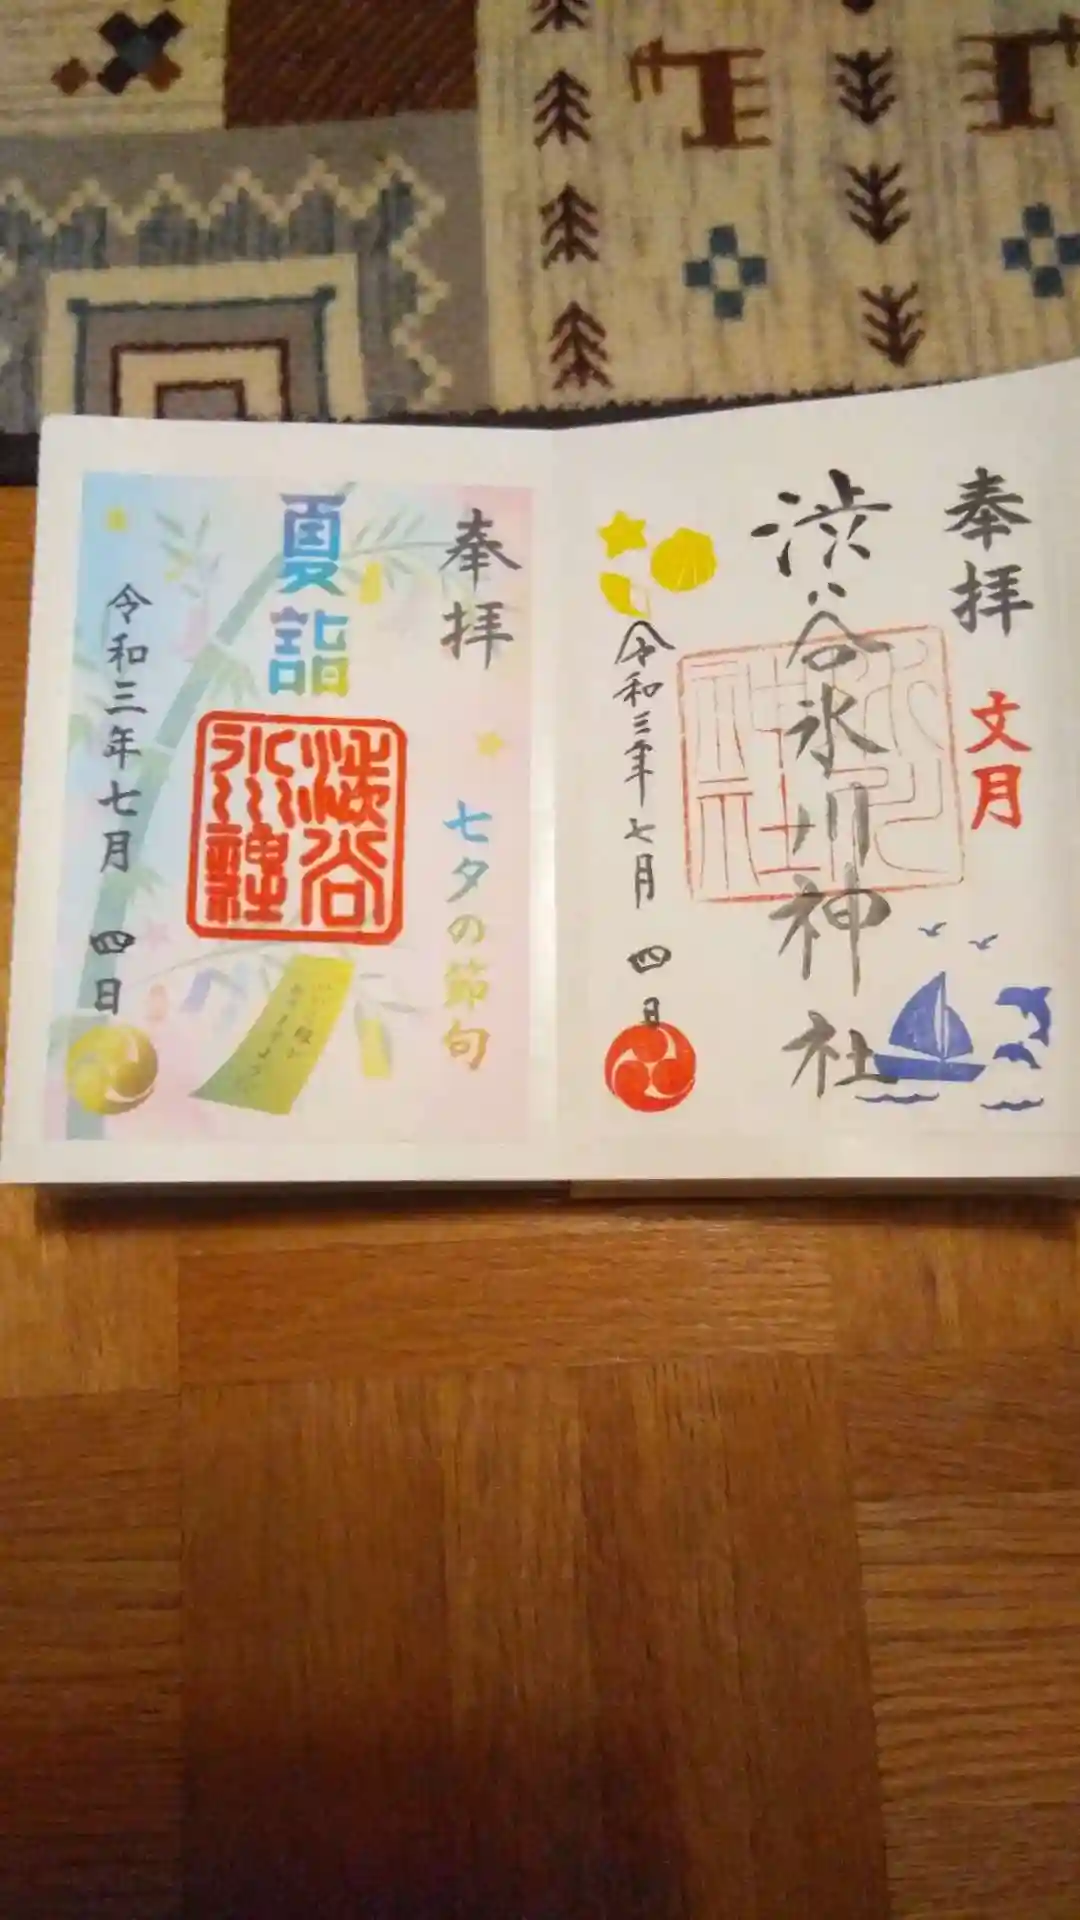 奉拝
文月
渋谷氷川神社
氷川神社
令和三年七月四日
奉拝
七夕の節句
夏詣
渋谷氷川神社
令和三年七月四日